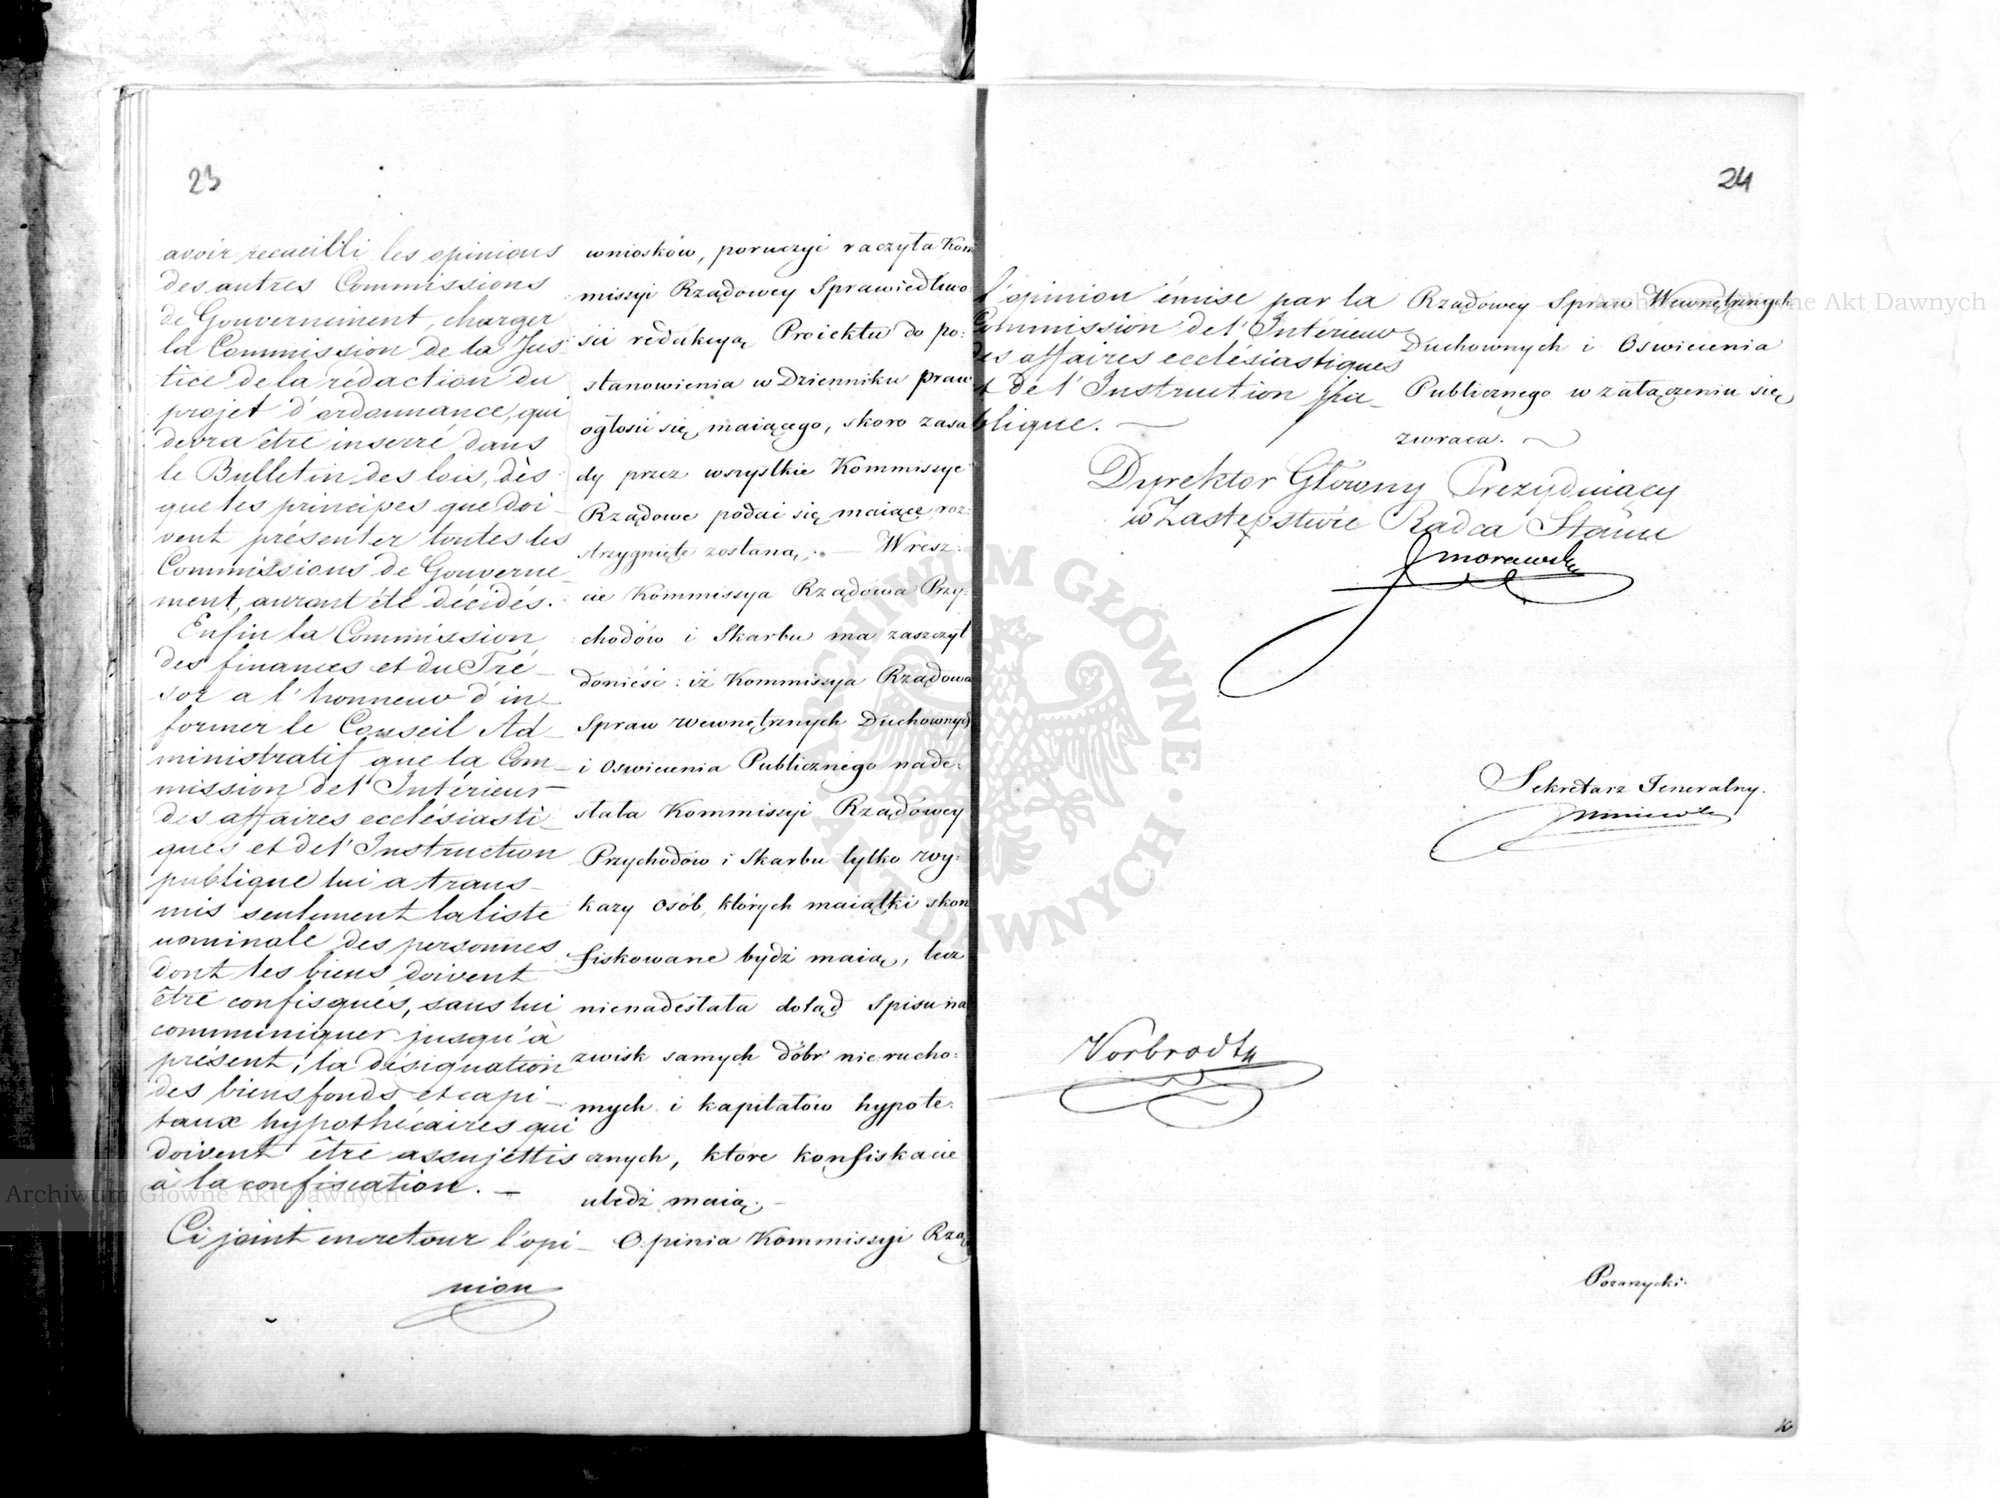 23
avoir recueilli les opinions
des autres Commissions
de Gouvernement, charger
la Commission de la Jus-
tice de la rédaction du
projet d'ordonnance, qui
devra être inserré dans
le Bulletin des lois, dès
que les principes que doi-
vent présenter toutes les
Commissions de Gouverne-
ment, auront été décidés.
Enfin la Commission
des finances et du Tré-
sor a l'honneur d'in-
former le Conseil Ad-
ministratif que la Com-
mission de l'Intérieur
des affaires ecclésiasti-
ques et de l'Instruction
publique lui a trans-
mis seulement la liste
nominale des personnes
dont les biens doivent
être confisqués, sans lui
communiquer jusqu'à
présent, la désignation
des biens fonds et capi-
taux hypothécaires qui
doivent être assujettis
à la confiscation. —
Ci joint en retour l'opi-
nion
wniosków, poruczyć raczyła Kom
missyi Rządowey Sprawiedliwo
ści redakcyą Proiektu do po:
stanowienia w Dzienniku praw
ogłosić się maiącego, skoro zasa
dy przez wszystkie Kommissye
Rządowe podać się maiące, roz:
strzygnięte zostaną. — Wresz:
cie Kommissya Rządowa Przy:
chodów i Skarbu ma zaszczyt
donieść: iż Kommissya Rządowa
Spraw Wewnętrznych Duchownych
i Oswiecenia Publicznego nade:
słała Kommissyi Rządowey
Przychodów i Skarbu tylko wy:
kazy osób, których maiątki skon
fiskowane bydź maią, lecz
nienadesłała dotąd Spisu na
zwisk samych dóbr nierucho:
mych i kapitałów hypote:
cznych, które konfiskacie
uledz maią. —
Opinia Kommissyi Rzą
24
l'opinion émise par la
Commission de l'Intérieur
des affaires ecclésiastiques
et de l'Instruction pu-
blique. —
Rządowey Spraw Wewnętrznych
Duchownych i Oświecenia
Publicznego w załączeniu się
zwraca. —
Dyrektor Główny Prezyduiący
w Zastępstwie Radca Stanu
J Morawski
Sekretarz Jeneralny.
Vorbrodt
Archiwum Główne Akt Dawnych
Archiwum Główne Akt Dawnych
ARCHIWUM GŁÓWNE AKT DAWNYCH